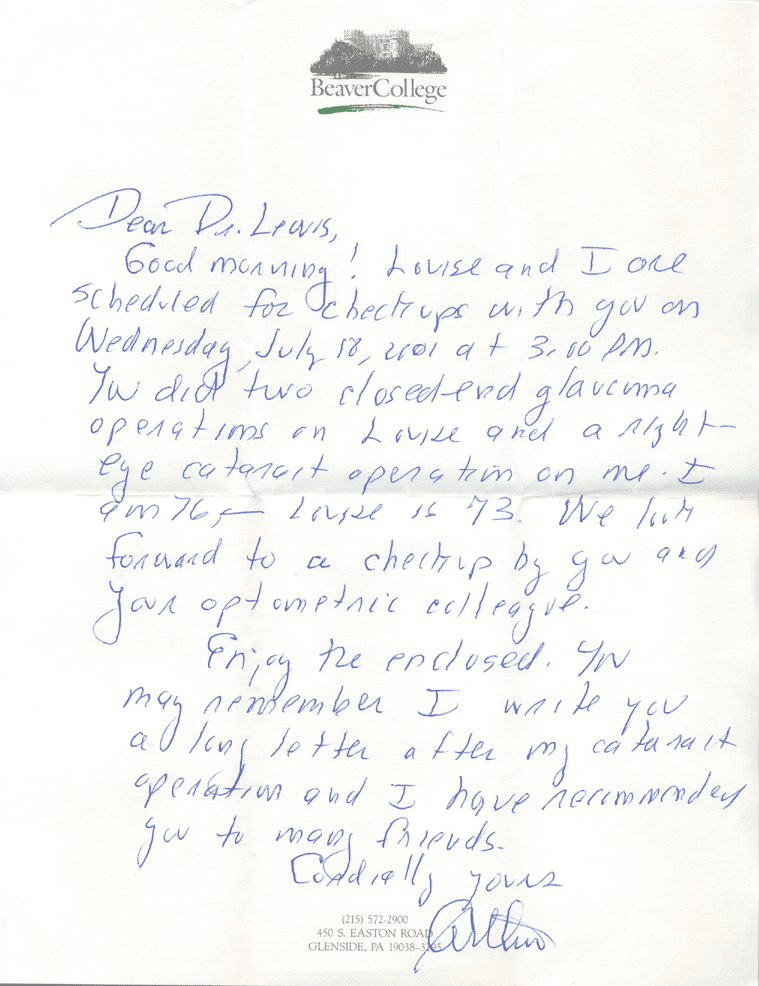 BeaverCollege
Dear Dr. Lewis,
Good morning! Louise and I are
scheduled for checkups with you on
Wednesday, July 18, 2001 at 3:00 P.M.
You did two closed-end glaucoma
operations on Louise and a right-
eye cataract operation on me. I
am 76, – Louise is 73. We look
forward to a checkup by you and
your optometric colleague.
Enjoy the enclosed. You
may remember I write you
a long letter after my cataract
operation and I have recommended
you to many friends.
Cordially yours
Arthur
(215) 572-2900
450 S. EASTON ROAD
GLENSIDE, PA 19038-3295